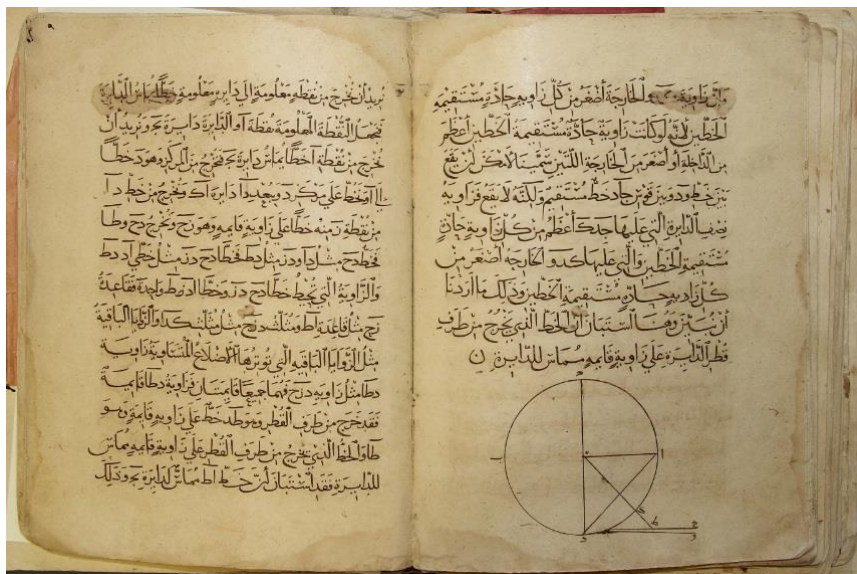 زاوية الخارجة أصغر من كل زاويه حادة مستقيمه
الخطين لانه لو كانت زاوية حادة مستقيمة الخطين أعظم
من الداخلة أو أصغر من الخارجة اللتين سمينا لامكن ان يقع
بين خط ود وبين قوس جاد خط مستقيم ولكنه لا يقع فزاوية
نصف الدايرة التي عليها جدك أعظم من كل زاوية حادة
مستقيمة الخطين والتي عليها كدو الخارجه أصغر من
كل زاويه حادة مستقيمة الخطين وذلك ما اردنا
ان نبين وهنا استبان ان الخط الذي يخرج من طرف
قطر الدايرة علي زاوية قايمه مماس للدايرة
نريد ان نخرج من نقطه معلومة الي دايره معلومة خطا يماس الدايرة
فنجعل النقطة المعلومة نقطة آ والدايرة دايرة بج ونريد أن
نخرج من نقطة آ خطا يماس دايرة بج فنخرج من المركز وهو د خطا
الي آ ونخط علي مركز د وببعد دا دايرة اك ونخرج من خط دا
من نقطة ز منه خطا علي زاوية قايمه وهو زح ونخرج دح وطا
فخط دح مثل دا ودز مثل دط فخطا دح دز مثل خطي اد دط
والزاوية التي تحيط خطا دح دز وخطا اد دط واحدة فقاعدة
زح مثل قاعدة اط ومثلث دزح مثل مثلث والزوايا الباقية
مثل الزوايا الباقيه التي توترها الاضلاع المتساوية زاوية
دطا مثل زاويه دزح فهما جميعا قايمتان فزاوية دطا قايمة
فقد خرج من طرف القطر وهو طد خط علي زاوية قايمة وهو
طا والخط الذي يخرج من طرف القطر علي زاوية قايمه مماس
للدايرة فقد استبان أن خط اط مماس لدايرة بج وذلك